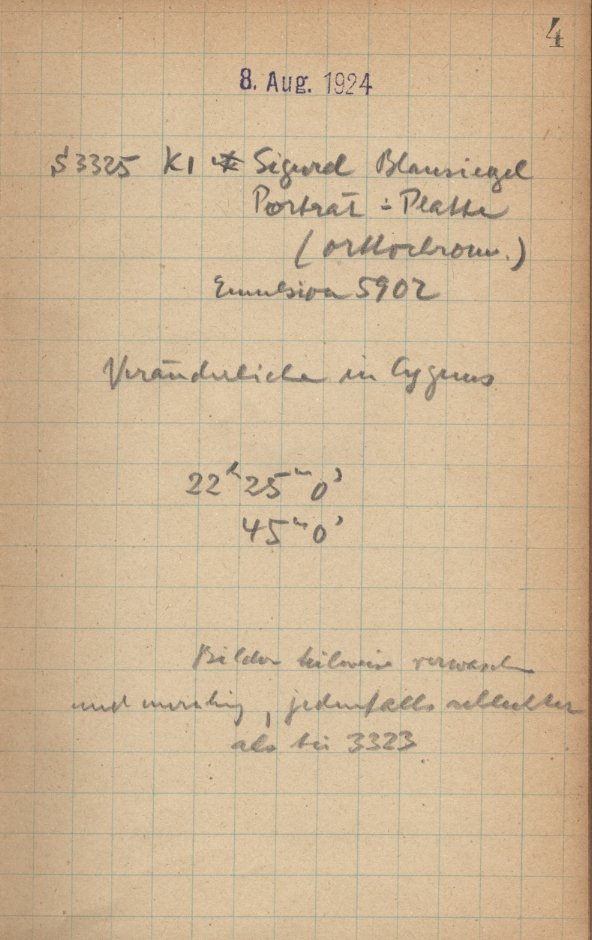 4
8. Aug. 1924
S 3325 K1 Sigurd Blausiegel
Porträt-Platte
(orthochrom.)
Emulsion 5902
Veränderliche in Cygnus
22ʰ25ᵐ0ˢ
45ᵐ0ˢ
Bilder teilweise verwaschen
und unruhig, jedenfalls schlechter
als bei 3323